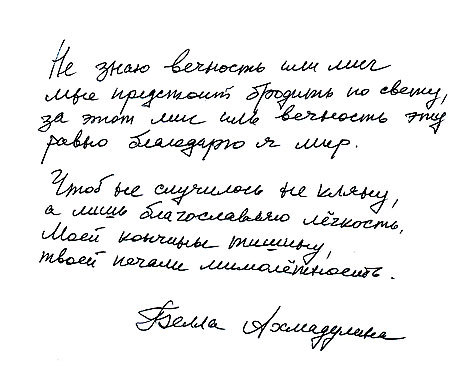 Не знаю вечность или миг
мне предстоит бродить по свету,
за этот миг иль вечность эту
равно благодарю я мир.
Чтоб не случилось не кляну,
а лишь благославляю лёгкость,
Моей кончины тишину,
твоей печали мимолётность.
Белла Ахмадулина